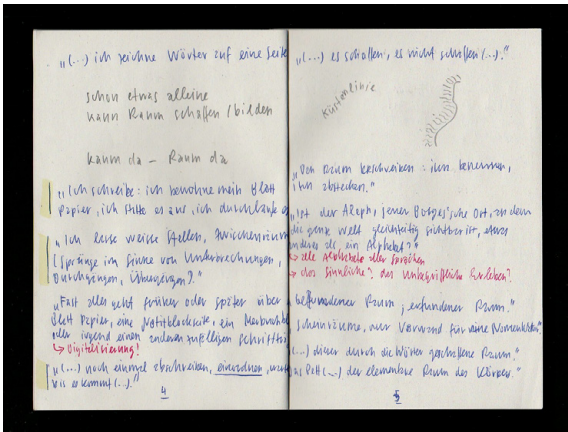 „(...) ich zeichne Wörter auf eine Seite
schon etwas alleine
kann Raum schaffen / bilden
kaum da – Raum da
„Ich schreibe: ich bewohne mein Blatt
Papier, ich statte es aus, ich durchlaufe es
„Ich lasse weiße Stellen, Zwischenräume
(Sprünge im Sinne von Unterbrechungen,
Durchgängen, Übergängen)."
„Fast alles geht früher oder später über
Blatt Papier, eine Notizblockseite, ein
oder irgend einen anderen zufälligen
↳ Digitalisierung!
„(...) noch einmal abschreiben, einordnen,
(...)."
4
„(...) es schaffen, es nicht schaffen (...)."
Küstenlinie
„Den Raum beschreiben: ihn benennen,
ihn abstecken."
„Ist der Aleph, jener Borges'sche Ort, an dem
die ganze Welt gleichzeitig sichtbar ist, etwas
anderes als ein Alphabet?"
↳ alle Alphabete aller Sprachen
↳ das Sinnliche? das unbegriffliche Erleben?
Raum, erfundener Raum."
nur Vorwand für eine
(...) dieser durch die Wörter geschaffene Raum."
das Bett (...) der elementare Raum des Körpers."
5